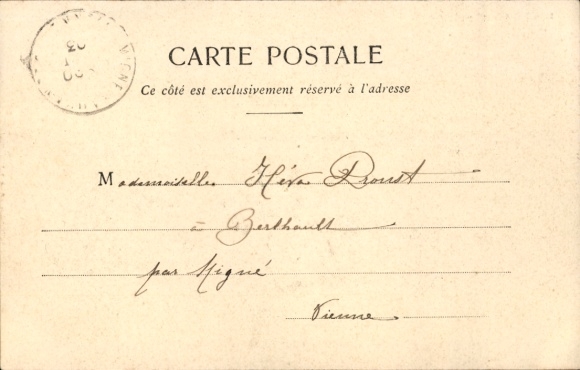 CARTE POSTALE
Ce côté est exclusivement réservé à l'adresse
Mademoiselle Héva Proust
à Berthault
par Migné
Vienne